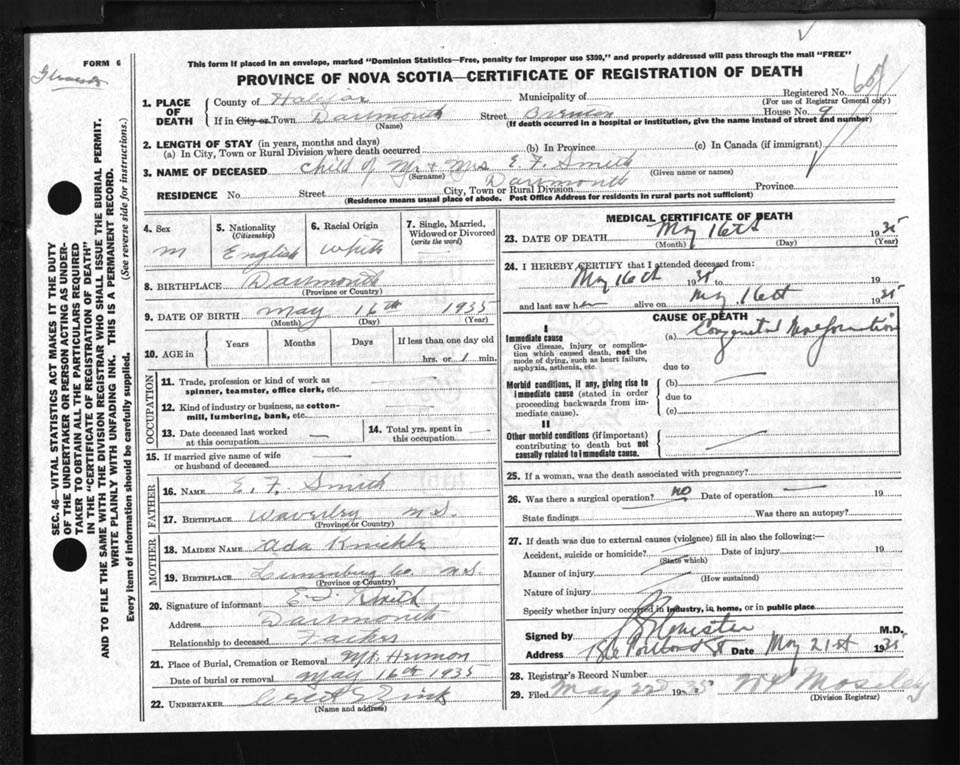 FORM 6
This form if placed in an envelope, marked "Dominion Statistics—Free, penalty for improper use $300," and properly addressed will pass through the mail "FREE"
PROVINCE OF NOVA SCOTIA—CERTIFICATE OF REGISTRATION OF DEATH
Registered No.
(For use of Registrar General only)
1. PLACE OF DEATH
County of Halifax Municipality of
If in City or Town Dartmouth Street House No. 9
(Name) (If death occurred in a hospital or institution, give the name instead of street and number)
2. LENGTH OF STAY (in years, months and days)
(a) In City, Town or Rural Division where death occurred (b) In Province (c) In Canada (if immigrant)
3. NAME OF DECEASED Child of Mr + Mrs E. F. Smith
(Surname) (Given name or names)
RESIDENCE No. Street City, Town or Rural Division Dartmouth Province
(Residence means usual place of abode. Post Office Address for residents in rural parts not sufficient)
SEC. 46—VITAL STATISTICS ACT MAKES IT THE DUTY
OF THE UNDERTAKER OR PERSON ACTING AS UNDER-
TAKER TO OBTAIN ALL THE PARTICULARS REQUIRED
IN THE "CERTIFICATE OF REGISTRATION OF DEATH"
AND TO FILE THE SAME WITH THE DIVISION REGISTRAR WHO SHALL ISSUE THE BURIAL PERMIT.
WRITE PLAINLY WITH UNFADING INK. THIS IS A PERMANENT RECORD.
Every item of information should be carefully supplied. (See reverse side for instructions.)
4. Sex
M
5. Nationality
(Citizenship)
English
6. Racial Origin
White
7. Single, Married,
Widowed or Divorced
(write the word)
8. BIRTHPLACE Dartmouth
(Province or Country)
9. DATE OF BIRTH May 16th 1935
(Month) (Day) (Year)
10. AGE in
Years Months Days If less than one day old
hrs. or 1 min.
OCCUPATION
11. Trade, profession or kind of work as
spinner, teamster, office clerk, etc.
12. Kind of industry or business, as cotton-
mill, lumbering, bank, etc.
13. Date deceased last worked
at this occupation
14. Total yrs. spent in
this occupation
15. If married give name of wife
or husband of deceased
FATHER
16. NAME E. F. Smith
17. BIRTHPLACE Waverley N.S.
(Province or Country)
MOTHER
18. MAIDEN NAME Ada Knickle
19. BIRTHPLACE Lunenburg Co. N.S.
(Province or Country)
20. Signature of informant E. F. Smith
Address Dartmouth
Relationship to deceased Father
21. Place of Burial, Cremation or Removal Mt Hermon
Date of burial or removal May 16th 1935
22. UNDERTAKER
(Name and address)
MEDICAL CERTIFICATE OF DEATH
23. DATE OF DEATH May 16th 1935
(Month) (Day) (Year)
24. I HEREBY CERTIFY that I attended deceased from:
May 16th 1935 to 19
and last saw h alive on May 16th 1935
CAUSE OF DEATH
I
Immediate cause
Give disease, injury or complica-
tion which caused death, not the
mode of dying, such as heart failure,
asphyxia, asthenia, etc.
(a) Congenital Malformation
due to
Morbid conditions, if any, giving rise to
immediate cause (stated in order
proceeding backwards from im-
mediate cause).
(b)
due to
(c)
II
Other morbid conditions (if important)
contributing to death but not
causally related to immediate cause.
25. If a woman, was the death associated with pregnancy?
26. Was there a surgical operation? no Date of operation 19
State findings Was there an autopsy?
27. If death was due to external causes (violence) fill in also the following:—
Accident, suicide or homicide? Date of injury 19
(State which)
Manner of injury
(How sustained)
Nature of injury
Specify whether injury occurred in industry, in home, or in public place
Signed by M.D.
Address Portland St Date May 21st 1935
28. Registrar's Record Number
29. Filed May 22nd 1935 Moseley
(Division Registrar)